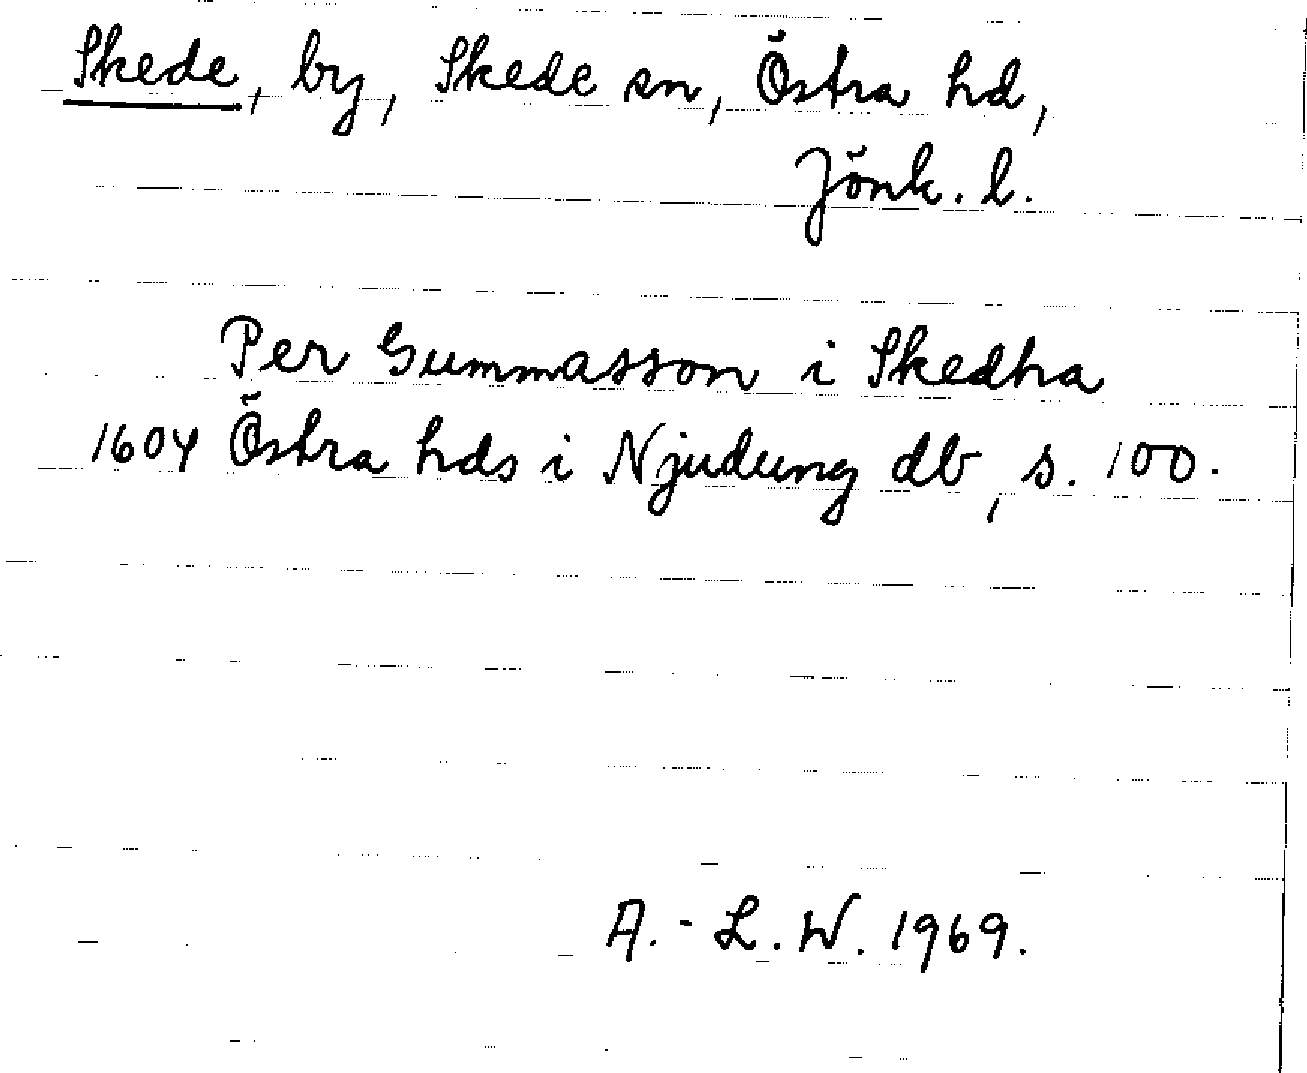 Skede, by, Skede sn, Östra hd,
Jönk. l.
Per Gummasson i Skedha
1604 Östra hds i Njudung db, s. 100.
A.-L. W. 1969.